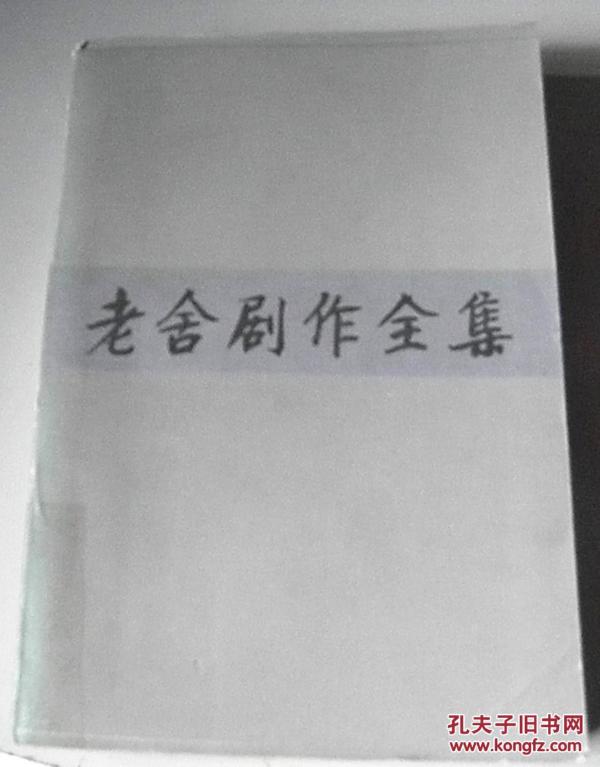 老舍剧作全集
孔夫子旧书网
www.kongfz.com